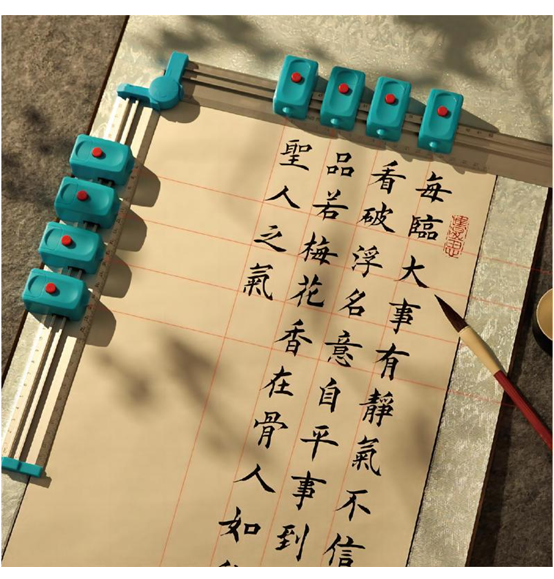 每臨大事有靜氣不信
看破浮名意自平事到
品若梅花香在骨人如
聖人之氣